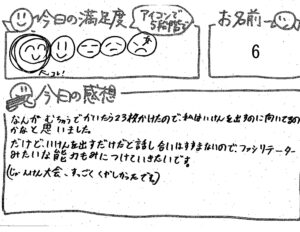 今日の満足度
アイコンで5段階で
お名前
6
大・コレ!
今日の感想
なんか むちゅうでかいたら23枚かけたので、私はいけんを出すのに向いてるの
かなと思いました。
だけど、いけんを出すだけだと話し合いはすすまないので、ファシリテーター
みたいな能力もみにつけていきたいです。
(じゃんけん大会、すっごくくやしかったです。)